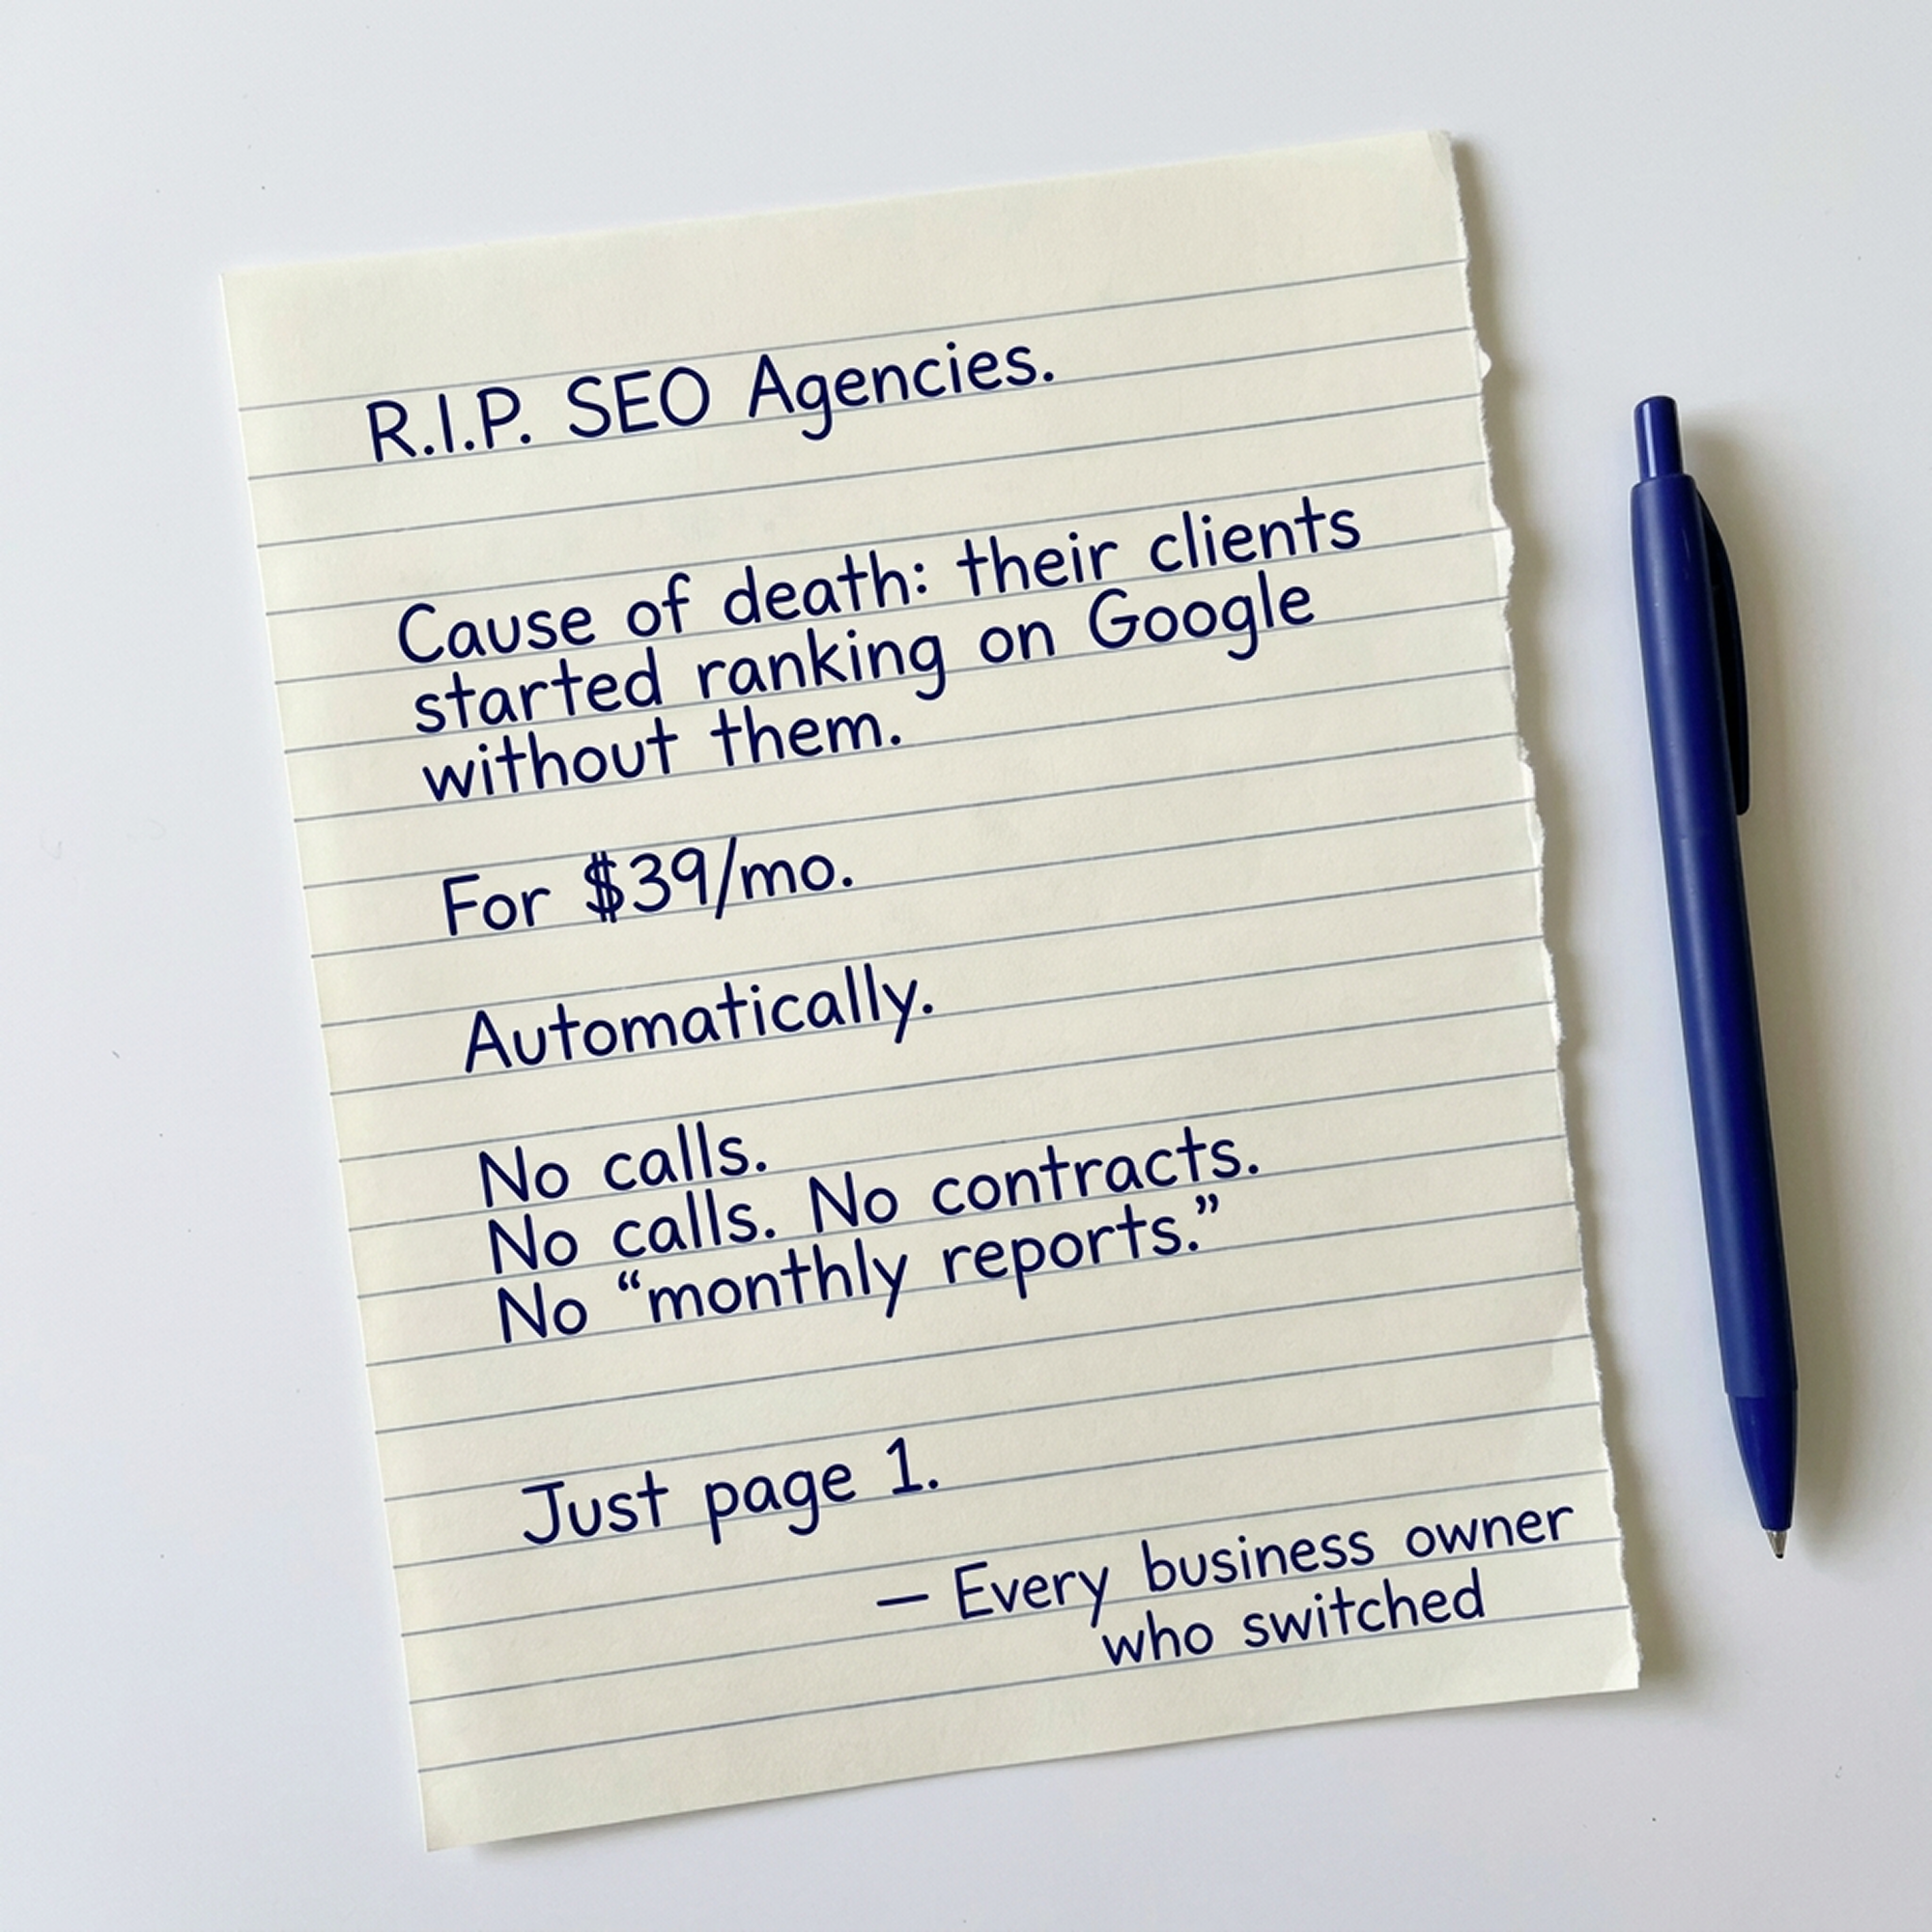 R.I.P. SEO Agencies.
Cause of death: their clients
started ranking on Google
without them.
For $39/mo.
Automatically.
No calls.
No calls. No contracts.
No “monthly reports.”
Just page 1.
— Every business owner
who switched